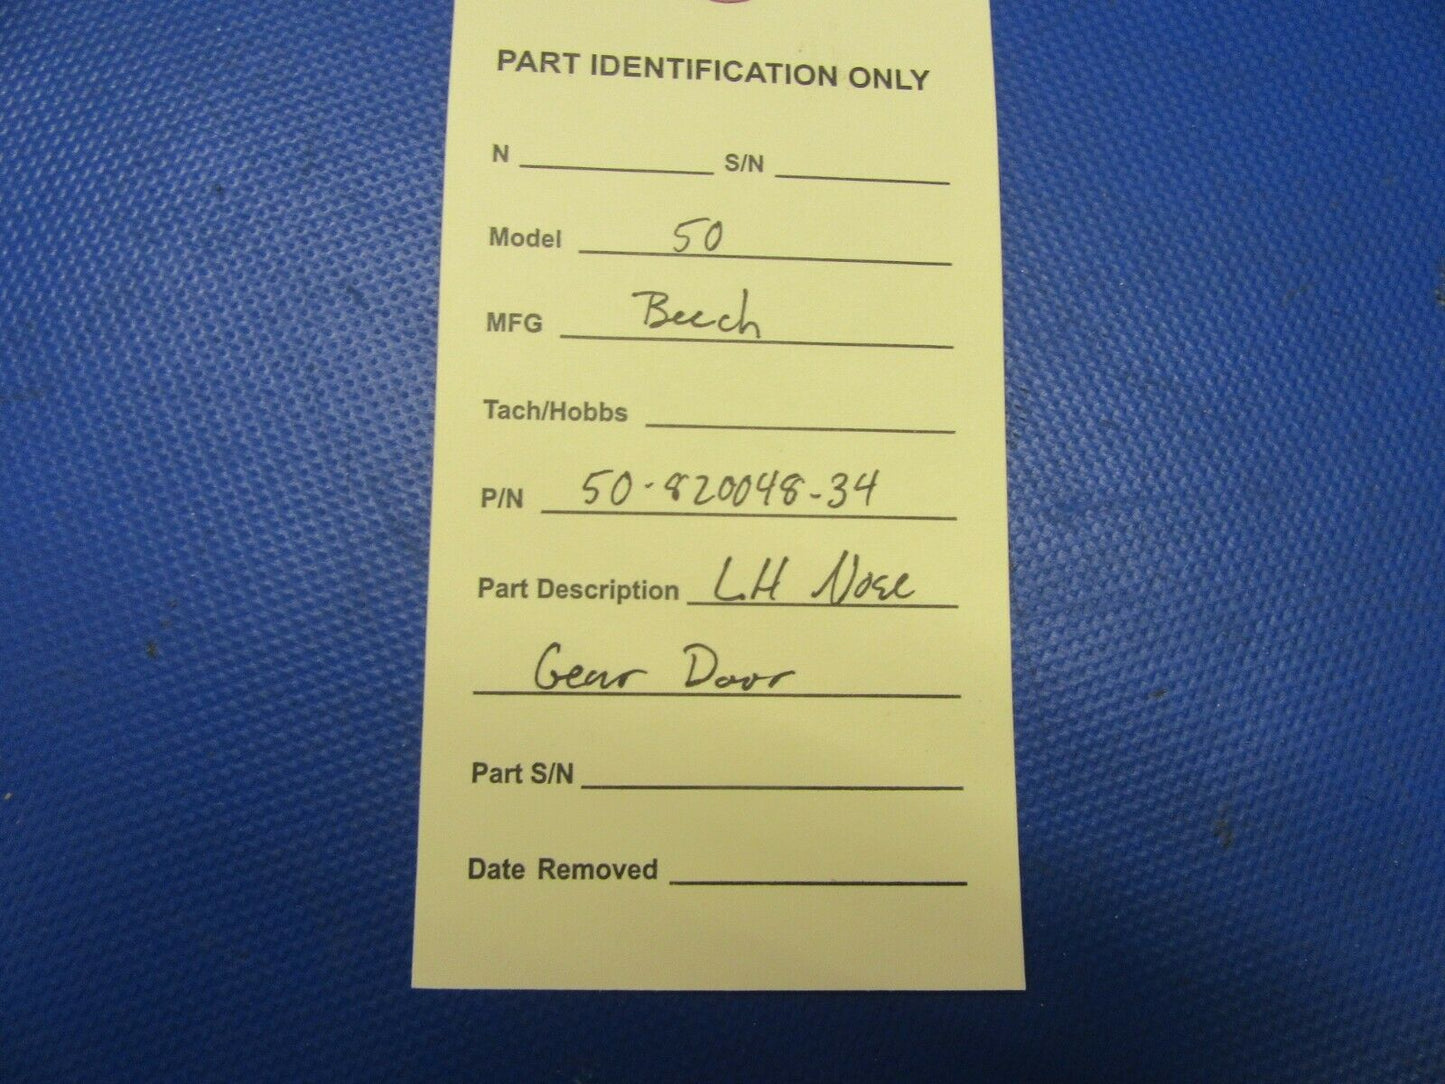 PART IDENTIFICATION ONLY
N S/N
Model 50
MFG Beech
Tach/Hobbs
P/N 50-820048-34
Part Description LH Nose
Gear Door
Part S/N
Date Removed